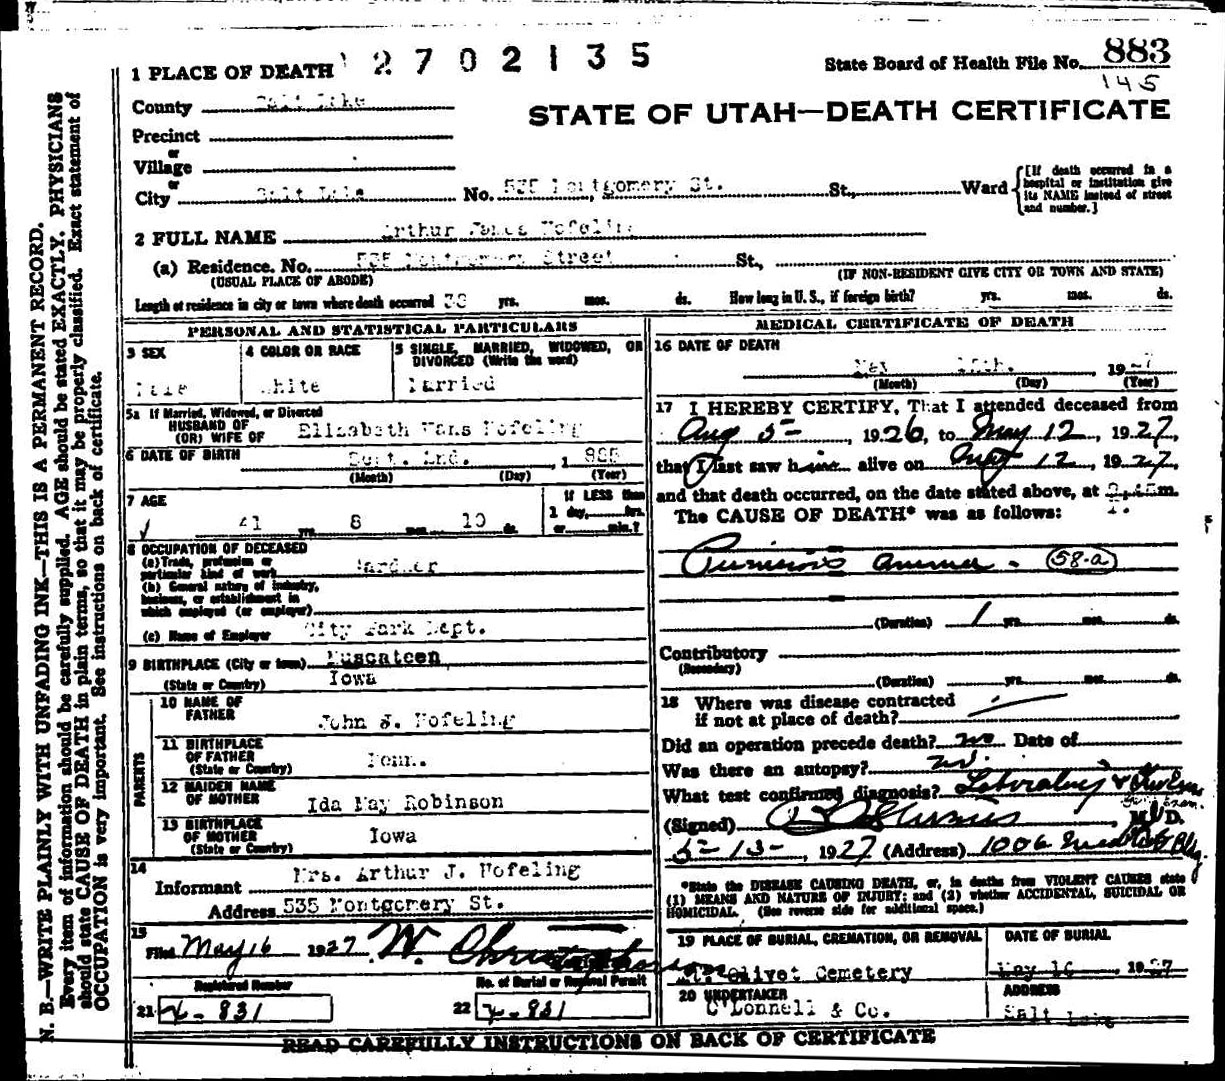 2702135
State Board of Health File No. 883
145
1 PLACE OF DEATH
STATE OF UTAH—DEATH CERTIFICATE
County Salt Lake
Precinct
or
Village
or
City Salt Lake No. 535 Montgomery St. St., Ward
[If death occurred in a hospital or institution give its NAME instead of street and number.]
2 FULL NAME Arthur James Hofeling
(a) Residence. No. 535 Montgomery Street St.,
(USUAL PLACE OF ABODE) (IF NON-RESIDENT GIVE CITY OR TOWN AND STATE)
Length of residence in city or town where death occurred 38 yrs. mos. ds. How long in U. S., if foreign birth? yrs. mos. ds.
PERSONAL AND STATISTICAL PARTICULARS
3 SEX
Male
4 COLOR OR RACE
White
5 SINGLE, MARRIED, WIDOWED, OR DIVORCED (Write the word)
Married
5a If Married, Widowed, or Divorced
HUSBAND OF
(OR) WIFE OF Elizabeth Hofeling
6 DATE OF BIRTH Sept. 2nd. , 1 885
(Month) (Day) (Year)
7 AGE
41 yrs 8 mos 10 ds.
If LESS than
1 day, hrs.
or min.?
8 OCCUPATION OF DECEASED
(a) Trade, profession or
particular kind of work Gardner
(b) General nature of industry,
business, or establishment in
which employed (or employer)
(c) Name of Employer City Park Dept.
9 BIRTHPLACE (City or town) Muscateen
(State or Country) Iowa
PARENTS
10 NAME OF
FATHER John S. Hofeling
11 BIRTHPLACE
OF FATHER
(State or Country) Penn.
12 MAIDEN NAME
OF MOTHER Ida May Robinson
13 BIRTHPLACE
OF MOTHER
(State or Country) Iowa
14
Informant Mrs. Arthur J. Hofeling
Address 535 Montgomery St.
15
Filed May 16 1927 W. Christopherson
Registered Number No. of Burial or Removal Permit
21 x-831 22 x-831
MEDICAL CERTIFICATE OF DEATH
16 DATE OF DEATH
May 12th. , 1927
(Month) (Day) (Year)
17 I HEREBY CERTIFY, That I attended deceased from
Aug 5 , 1926, to May 12, 1927,
that I last saw him alive on May 12, 1927,
and that death occurred, on the date stated above, at m.
The CAUSE OF DEATH* was as follows:
Pernicious anemia. 58-a
(Duration) 1 yrs. mos. ds.
Contributory
(Secondary)
(Duration) yrs. mos. ds.
18 Where was disease contracted
if not at place of death?
Did an operation precede death? no Date of
Was there an autopsy? no.
What test confirmed diagnosis? Laboratory &
(Signed) M. D.
5-13-, 1927 (Address) 1006 Bldg.
*State the DISEASE CAUSING DEATH, or, in deaths from VIOLENT CAUSES state
(1) MEANS AND NATURE OF INJURY; and (2) whether ACCIDENTAL, SUICIDAL OR
HOMICIDAL. (See reverse side for additional space.)
19 PLACE OF BURIAL, CREMATION, OR REMOVAL
Mt. Olivet Cemetery
DATE OF BURIAL
May 16 1927
20 UNDERTAKER
O'Donnell & Co.
ADDRESS
Salt Lake
READ CAREFULLY INSTRUCTIONS ON BACK OF CERTIFICATE
N. B.—WRITE PLAINLY WITH UNFADING INK—THIS IS A PERMANENT RECORD.
Every item of information should be carefully supplied. AGE should be stated EXACTLY. PHYSICIANS
should state CAUSE OF DEATH in plain terms, so that it may be properly classified. Exact statement of
OCCUPATION is very important. See instructions on back of certificate.